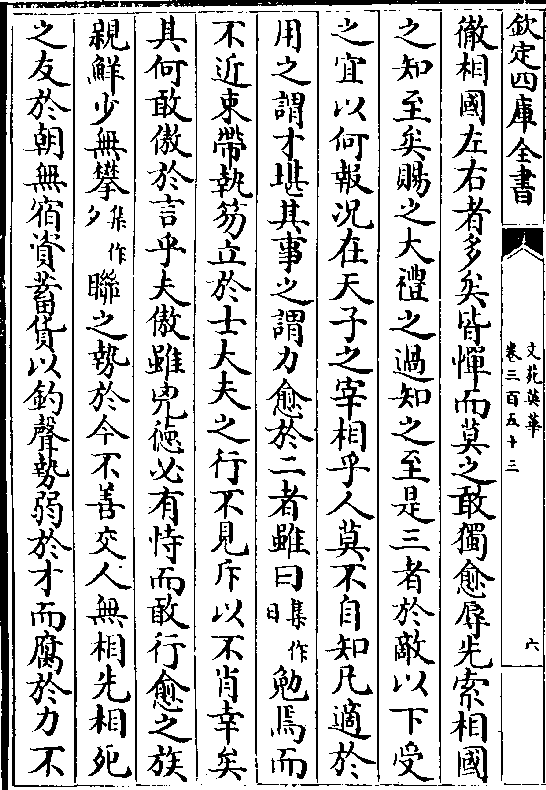 欽定四庫全書
文苑英華
卷三百五十三
六
徹相國左右者多矣皆憚而莫之敢獨愈辱先索相國
之知至矣賜之大禮之過知之至是三者於敵以下受
之宜以何報况在天子之宰相乎人莫不自知凡適於
用之謂才堪其事之謂力愈於二者雖曰集作日勉焉而
不近束帶執笏立於士大夫之行不見斥以不肖幸矣
其何敢傲於言乎夫傲雖兇德必有恃而敢行愈之族
親鮮少無攀集作夕聯之勢於今不善交人無相先相死
之友於朝無宿資蓄貨以釣聲勢弱於才而腐於力不